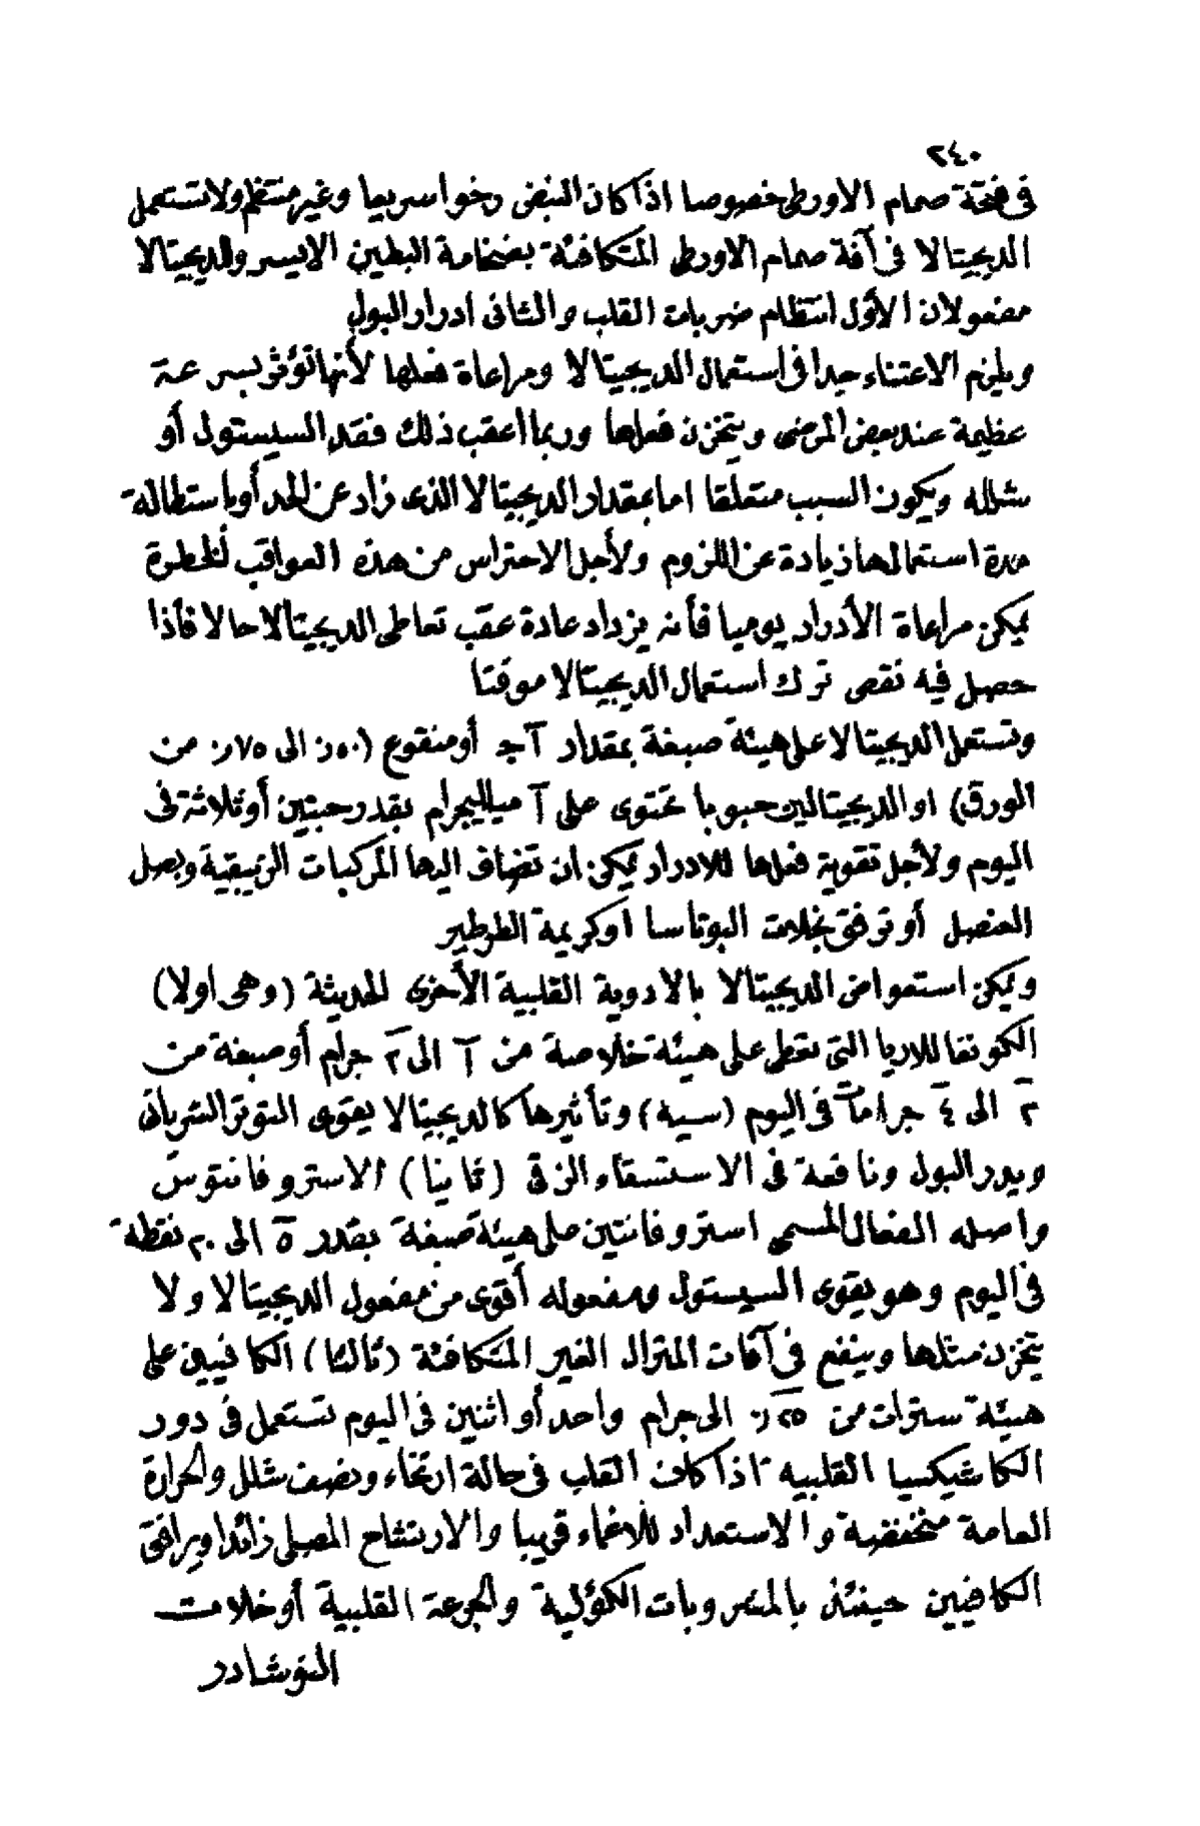 ٢٤٠
فى فتحة صمام الاورطى خصوصا اذا كان النبض رخوا سريعا وغير منتظم ولا تستعمل
الديجيتالا فى آفة صمام الاورطى المتكافئة بضخامة البطين الايسر وللديجيتالا
مفعولان الأول انتظام ضربات القلب والثانى ادرار البول
ويلزم الاعتناء جيدا فى استعمال الديجيتالا ومراعاة فعلها لأنها تؤثر بسرعة
عظيمة عند بعض المرضى ويتخزن فعلها وربما اعقب ذلك فقد السيستول أو
شلله ويكون السبب متعلقا اما بمقدار الديجيتالا الذى زاد عن الحد أو باستطالة
مدة استعمالها زيادة عن اللزوم ولأجل الاحتراس من هذه العواقب الخطرة
يمكن مراعاة الأدرار يوميا فأنه يزداد عادة عقب تعاطى الديجيتالا حالا فأذا
حصل فيه نقص ترك استعمال الديجيتالا موقتا
وتستعمل الديجيتالا على هيئة صبغة بمقدار ١ جـ أو منقوع (٥٠ر٠ الى ٧٥ر٠ من
الورق) او الديجيتالين حبوبا تحتوى على ١ ميلليجرام بقدر حبتين أو ثلاثة فى
اليوم ولأجل تقوية فعلها للادرار يمكن ان تضاف اليها المركبات الزيبقية وبصل
العنصل أو ترفق بخلات البوتاسا اوكريمة الطرطير
ويمكن استعواض الديجيتالا بالادوية القلبية الأخرى الحديثة (وهى اولا)
الكونفاللاريا التى تعطى على هيئة خلاصة من ١ الى ٢ جرام أو صبغة من
٢ الى ٤ جرامات فى اليوم (سيه) وتأثيرها كالديجيتالا يقوى التوتر الشريانى
ويدر البول ونافعة فى الاستسقاء الزقى (ثانيا) الاستروفانتوس
واصله الفعال المسمى استروفانتين على هيئة صبغة بقدر ٥ الى ٢٠ نقطة
فى اليوم وهو يقوى السيستول ومفعوله أقوى من مفعول الديجيتالا ولا
يتخزن مثلها وينفع فى آفات المترال الغير المتكافئة (ثالثا) الكافيين على
هيئة سترات من ٢٥ر٠ الى جرام واحد أو اثنين فى اليوم تستعمل فى دور
الكاشيكسيا القلبيه اذا كان القلب فى حالة ارتخاء ونصف شلل والحرارة
العامة منخفضة والاستعداد للاغماء قريبا والارتشاح المصلى زائدا ويرافق
الكافيين حينئذ بالمشروبات الكؤلية والجرعة القلبية أو خلات
النوشادر